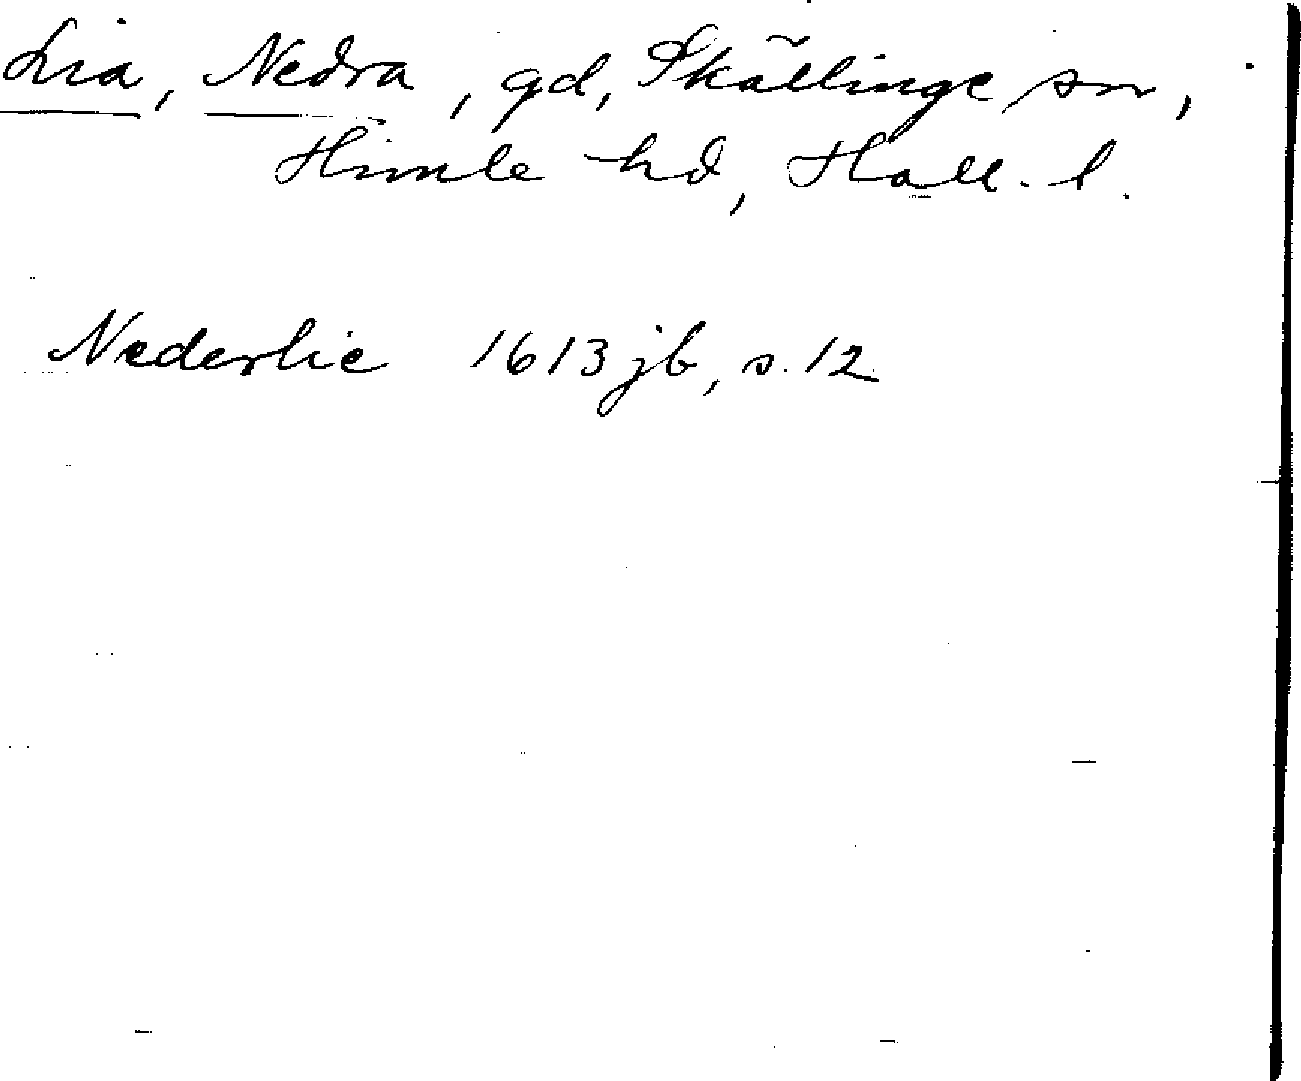 Lia, Nedra, gd, Skällinge sn,
Himle hd, Hall. l.
Nederlie 1613 jb, s. 12